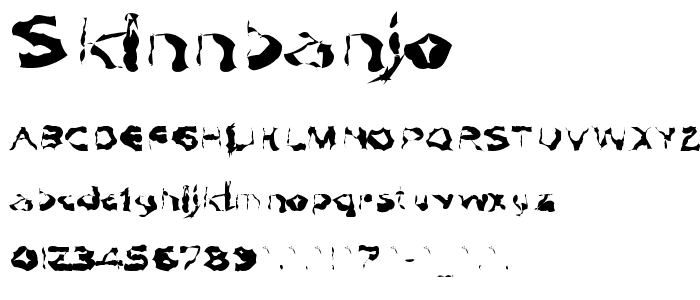 Skinnbanjo
ABCDEFGHIJKLMNOPQRSTUVWXYZ
abcdefghijklmnopqrstuvwxyz
0123456789